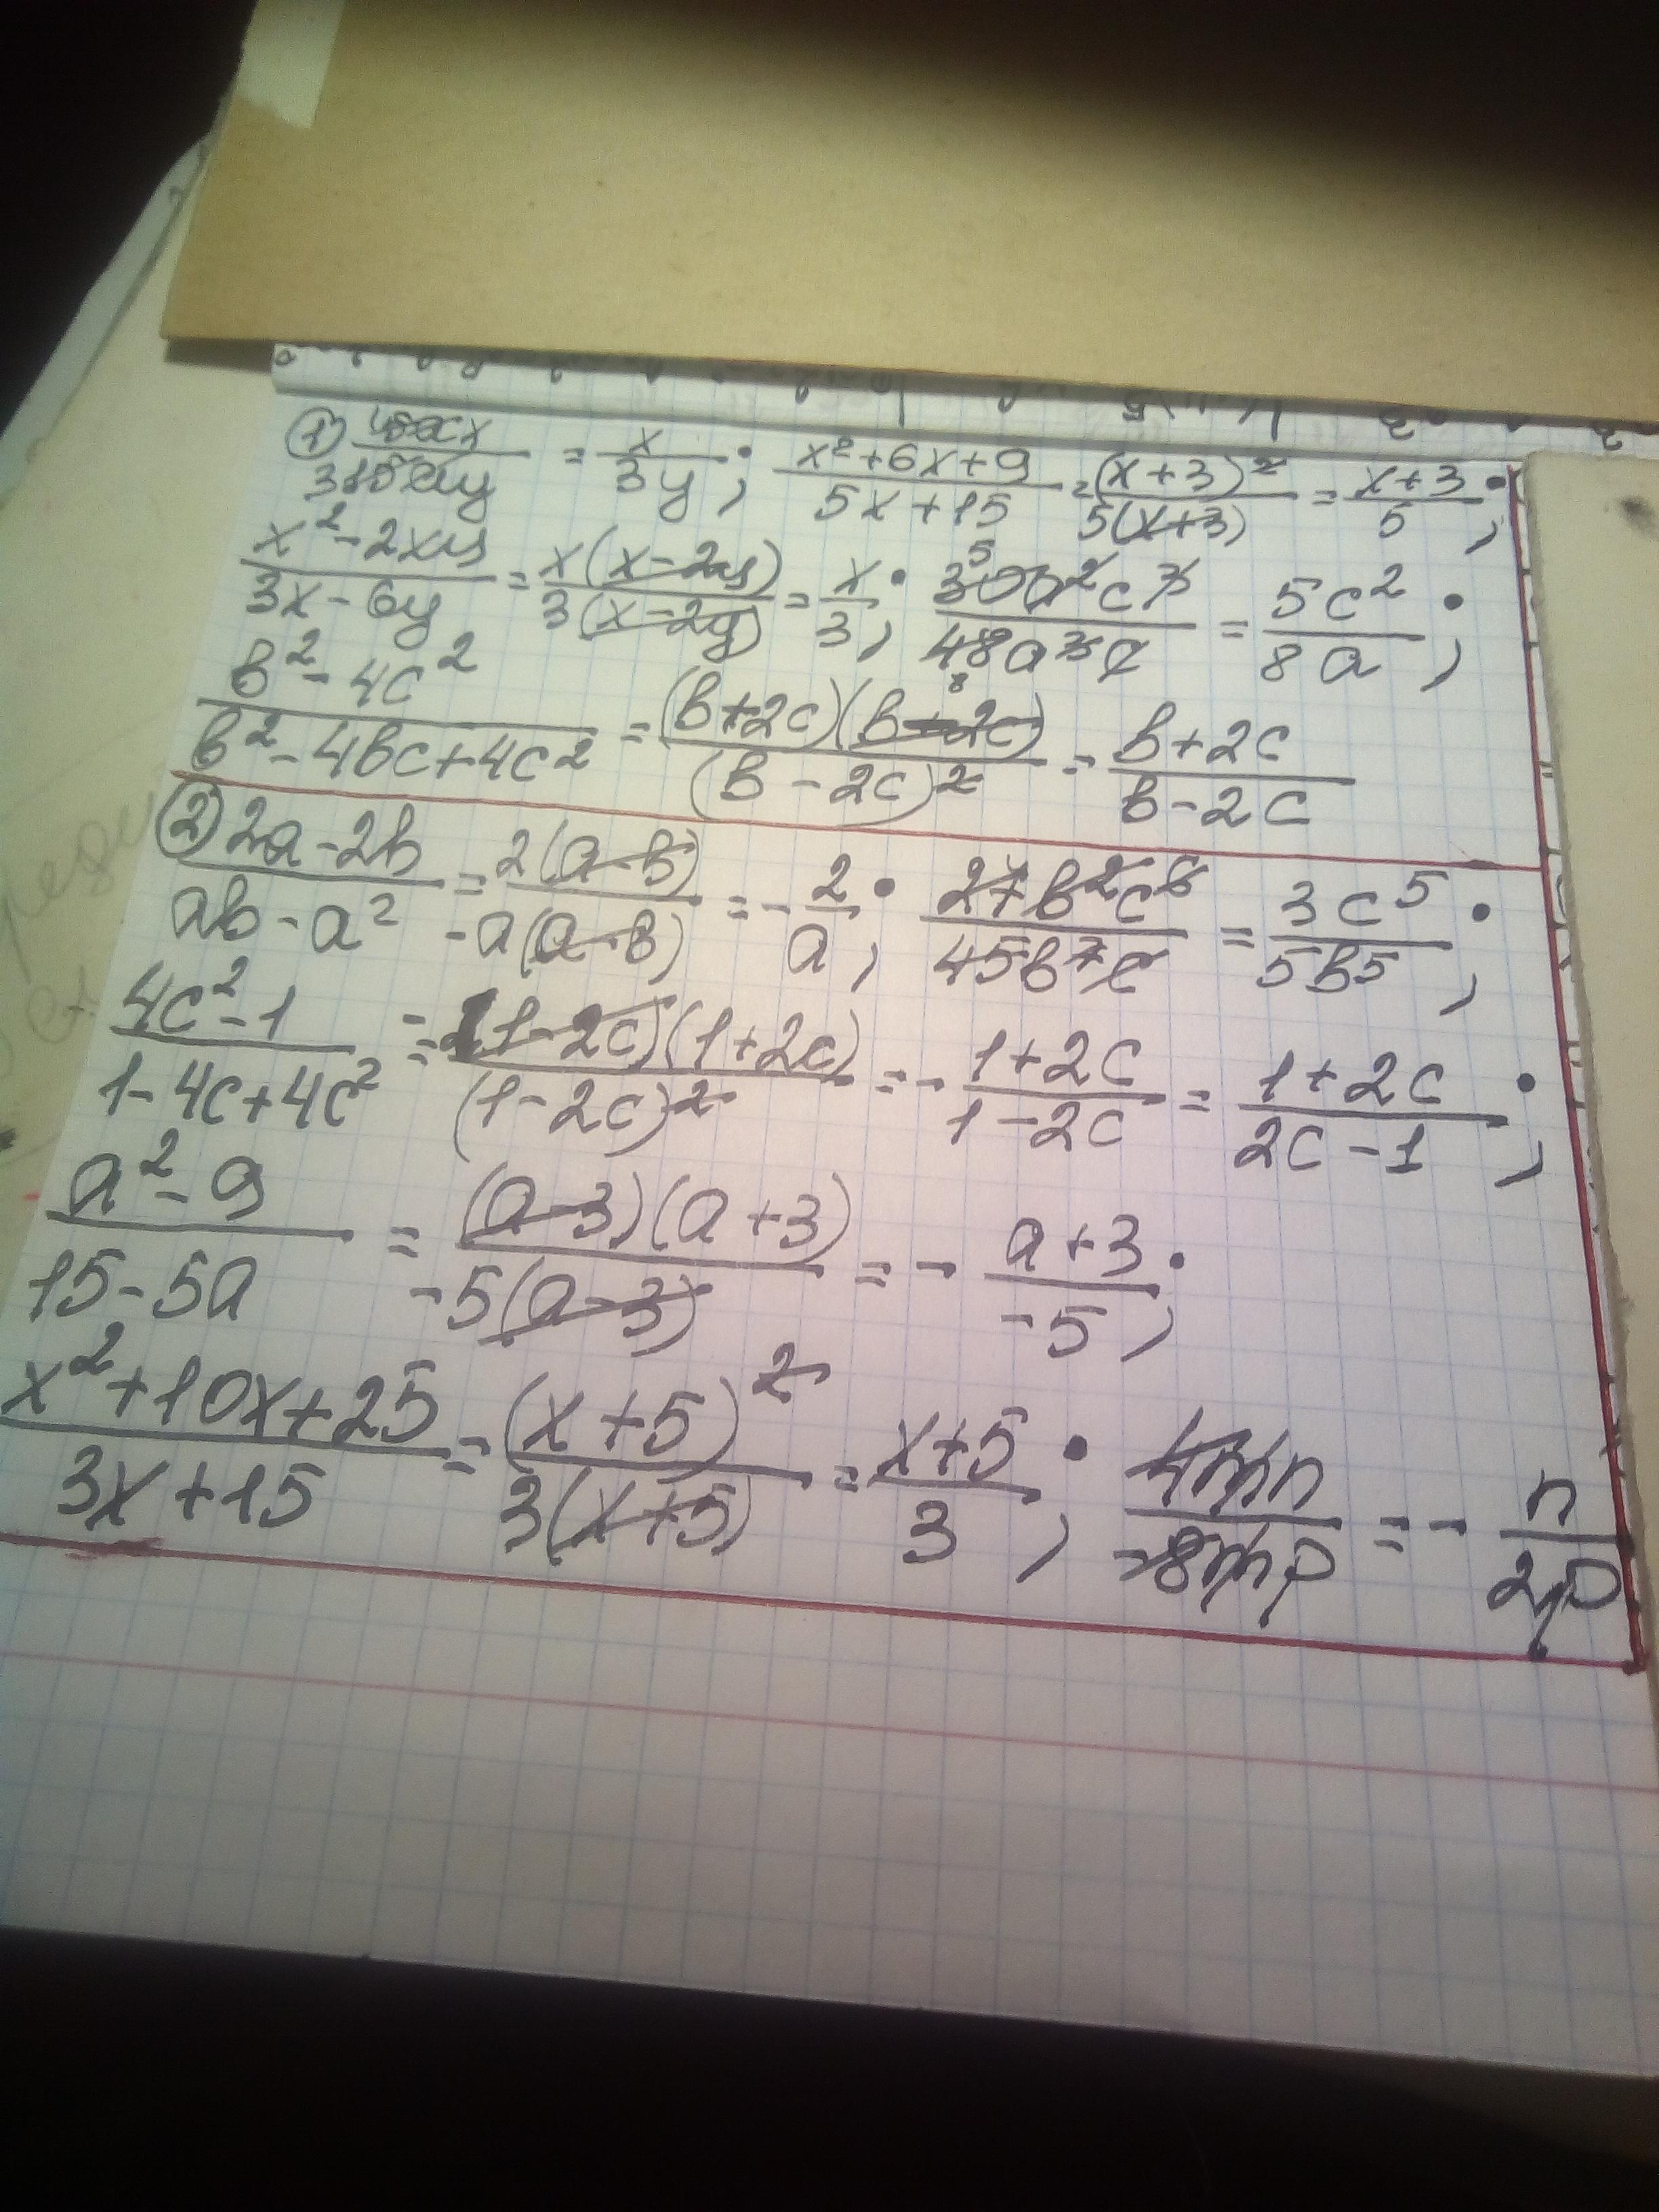 ① x/315ay = x/3y; (x²+6x+9)/(5x+15) = (x+3)²/5(x+3) = (x+3)/5;
(x²-2xy)/(3x-6y) = x(x-2y)/3(x-2y) = x/3; 30a²c³/48a³c = 5c²/8a;
(b²-4c²)/(b²-4bc+4c²) = (b+2c)(b-2c)/(b-2c)² = (b+2c)/(b-2c)
② (2a-2b)/(ab-a²) = 2(a-b)/-a(a-b) = -2/a; 27b²c⁶/45b⁷c = 3c⁵/5b⁵;
(4c²-1)/(1-4c+4c²) = -(1-2c)(1+2c)/(1-2c)² = -(1+2c)/(1-2c) = (1+2c)/(2c-1);
(a²-9)/(15-5a) = (a-3)(a+3)/-5(a-3) = -(a+3)/-5;
(x²+10x+25)/(3x+15) = (x+5)²/3(x+5) = (x+5)/3; 4mn/-8mp = -n/2p